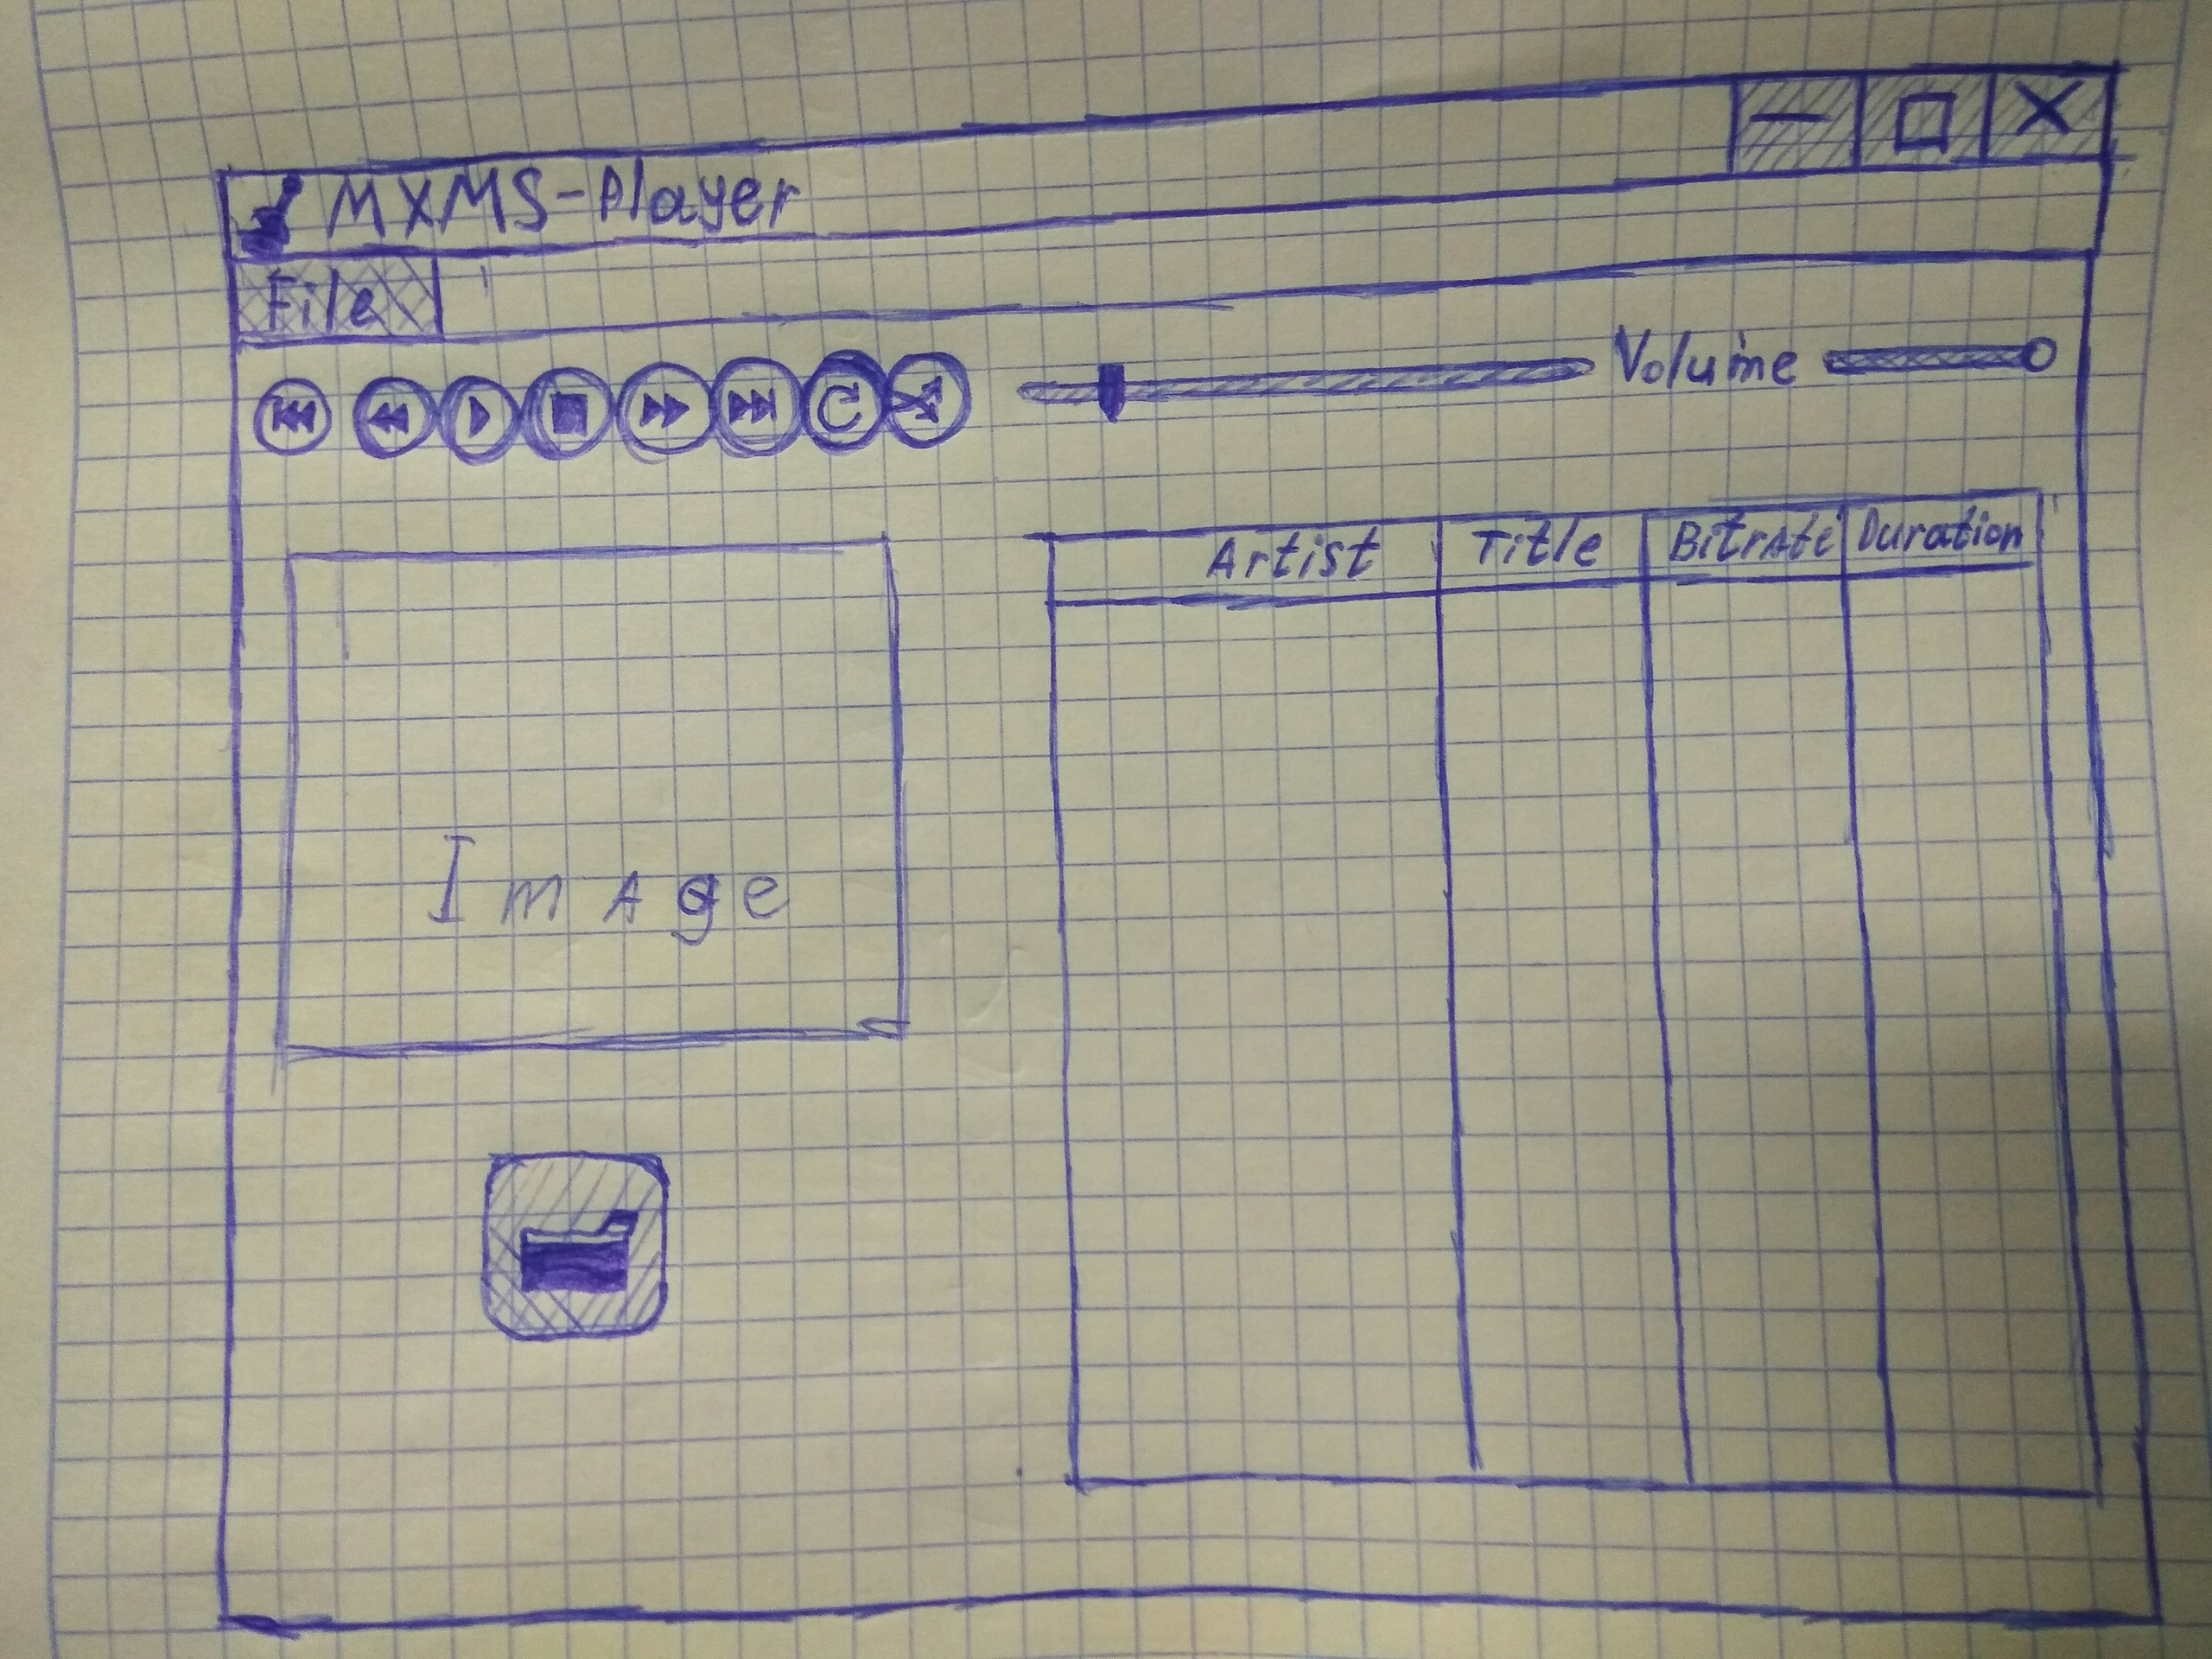 MXMS-Player
File
Volume
Artist Title Bitrate Duration
Image